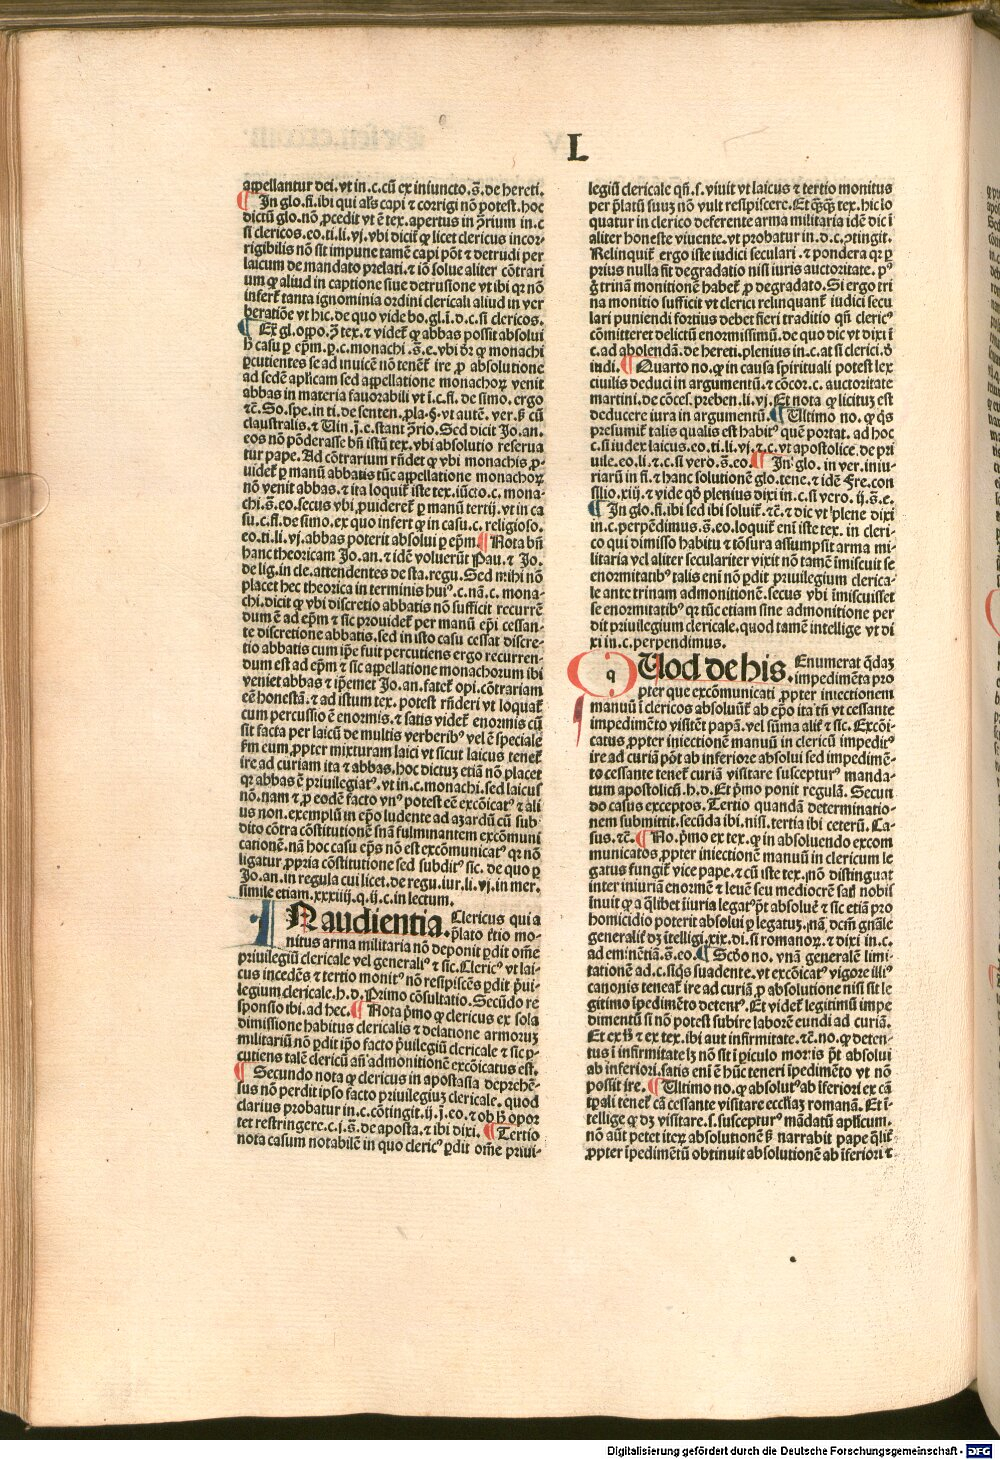 L
appellantur dei. vt in. c. cū ex iniuncto. s̄. de hereti.
¶ In glo. fi. ibi qui al's capi ⁊ corrigi nō potest. hoc
dictū glo. nō ꝓcedit vt ē tex. apertus in ꝯ̄rium in. c
si clericos. eo. ti. li. vj. vbi dicit̄ ꝙ licet clericus incor-
rigibilis nō sit impune tamē capi pōt ⁊ detrudi per
laicum de mandato prelati. ⁊ iō solue aliter cōtrari
um ꝙ aliud in captione siue detrusione vt ibi qr nō
infert̄ tanta ignominia ordini clericali aliud in ver
beratiōe vt hic. de quo vide bo. gl. ī. d. c. si clericos.
¶ Ex gl. oppo. ꝯ̄ tex. ⁊ videt̄ ꝙ abbas possit absolui
h̄ casu ꝑ ep̄m. ꝑ. c. monachi. s̄. e. vbi dr̄ ꝙ monachi
ꝑcutientes se ad inuicē nō tenēt̄ ire ꝓ absolutione
ad sedē aplicam sed appellatione monachoꝝ venit
abbas in materia fauorabili vt ī. c. fi. de simo. ergo
⁊c̄. So. spe. in ti. de senten. ꝓla. §. vt autē. ver. s̄ cū
claustralis. ⁊ Uin. ī. e. stant ꝯ̄rio. Sed dicit Jo. an.
eos nō pōderasse bn̄ istū tex. vbi absolutio reserua
tur pape. Ad cōtrarium rn̄det ꝙ vbi monachis ꝓ-
uidet̄ ꝑ manū abbatis tūc appellatione monachoꝝ
nō venit abbas. ⁊ ita loquit̄ iste tex. iūcto. c. mona-
chi. s̄. eo. secus vbi ꝓuideret̄ ꝑ manū tertij. vt in ca
su. c. fi. de simo. ex quo infert ꝙ in casu. c. religioso.
eo. ti. li. vj. abbas poterit absolui ꝑ ep̄m. ¶ Nota bn̄
hanc theoricam Jo. an. ⁊ idē voluerūt Pau. ⁊ Jo.
de lig. in cle. attendentes de sta. regu. Sed mihi nō
placet hec theorica in terminis huiꝰ. c. nā. c. mona-
chi. dicit ꝙ vbi discretio abbatis nō sufficit recurrē
dum ē ad ep̄m ⁊ sic prouidet̄ per manū ep̄i cessan-
te discretione abbatis. sed in isto casu cessat discre-
tio abbatis cum ip̄e fuit percutiens ergo recurren-
dum est ad ep̄m ⁊ sic appellatione monachorum ibi
veniet abbas ⁊ ip̄emet Jo. an. fatet̄ opi. cōtrariam
eē honestā. ⁊ ad istum tex. potest rn̄deri vt loquat̄
cum percussio ē enormis. ⁊ satis videt̄ enormis cū
sit facta per laicū de multis verberibꝰ vel ē speciale
fm eum. ꝓpter mixturam laici vt sicut laicus tenet̄
ire ad curiam ita ⁊ abbas. hoc dictuꝫ etiā nō placet
qr abbas ē priuilegiatꝰ. vt in. c. monachi. sed laicus
nō. nam ⁊ ꝓ eodē facto vnꝰ potest eē excōicatꝰ ⁊ ali
us non. exemplū in ep̄o ludente ad azardū cū sub
dito cōtra cōstitutionē snā fulminantem excōmuni
cationē. nā hoc casu ep̄s nō est excōmunicatꝰ qr nō
ligatur ꝓpria cōstitutione sed subditꝰ sic. de quo ꝑ
Jo. an. in regula cui licet. de regu. iur. li. vj. in mer.
simile etiam. xxxiiij. q. ij. c. in lectum.
IN audientia. Clericus qui a
p̄lato t̄tio mo-
nitus arma militaria nō deponit ꝑdit om̄e
priuilegiū clericale vel generaliꝰ ⁊ sic. Clericꝰ vt lai-
cus incedēs ⁊ tertio monitꝰ nō resipiscēs ꝑdit p̄ui-
legium clericale. h. d. Primo cōsultatio. Secūdo re
sponsio ibi. ad hec. ¶ Nota p̄mo ꝙ clericus ex sola
dimissione habitus clericalis ⁊ delatione armoruꝫ
militariū nō ꝑdit ip̄o facto p̄uilegiū clericale ⁊ sic ꝑ-
cutiens talē clericū an̄ admonitionē excōicatus est.
¶ Secundo nota ꝙ clericus in apostasia deprehē-
sus nō perdit ipso facto priuilegiuꝫ clericale. quod
clarius probatur in. c. cōtingit. ij. j. eo. ⁊ ob h̄ opor
tet restringere. c. j. s̄. de aposta. ⁊ ibi dixi. ¶ Tertio
nota casum notabilē in quo clericꝰ ꝑdit om̄e priui-
legiū clericale qn̄. s. viuit vt laicus ⁊ tertio monitus
per p̄latū suuꝫ nō vult resipiscere. Et q̄q̄ꝫ tex. hic lo
quatur in clerico deferente arma militaria idē dic ī
aliter honeste viuente. vt probatur in. d. c. ꝯtingit.
Relinquit̄ ergo iste iudici seculari. ⁊ pondera qr ꝑ
prius nulla fit degradatio nisi iuris auctoritate. pꝰ
q̄ trinā monitionē habet̄ ꝓ degradato. Si ergo tri
na monitio sufficit vt clerici relinquant̄ iudici secu
lari puniendi fortius debet fieri traditio qn̄ clericꝰ
cōmitteret delictū enormissimū. de quo dic vt dixi ī
c. ad abolendā. de hereti. plenius in. c. at si clerici. d̄
iudi. ¶ Quarto no. ꝙ in causa spirituali potest lex
ciuilis deduci in argumentū. ⁊ cōcor. c. auctoritate
martini. de cōces. preben. li. vj. Et nota ꝙ licituꝫ est
deducere iura in argumentū. ¶ Ultimo no. ꝙ q̄s
presumit̄ talis qualis est habitꝰ quē portat. ad hoc
c. si iudex laicus. eo. ti. li. vj. ⁊. c. vt apostolice. de pri
uile. eo. li. ⁊. c. si vero. s̄. eo. ¶ In glo. in ver. iniu-
riarū in fi. ⁊ hanc solutionē glo. tene. ⁊ idē Fre. con
silio. xiij. ⁊ vide qd̄ plenius dixi in. c. si vero. ij. s̄. e.
¶ In glo. fi. ibi sed ibi soluit̄. ⁊c̄. ⁊ dic vt plene dixi
in. c. perpēdimus. s̄. eo. loquit̄ eni iste tex. in cleri-
co qui dimisso habitu ⁊ tōsura assumpsit arma mi-
litaria vel aliter seculariter vixit nō tamē īmiscuit se
enormitatibꝰ talis eni nō ꝑdit priuilegium clerica-
le ante trinam admonitionē. secus vbi īmiscuisset
se enormitatibꝰ qr tūc etiam sine admonitione per
dit priuilegium clericale. quod tamē intellige vt di
xi in. c. perpendimus.
QUod de his. Enumerat q̄daꝫ
impedimēta pro
pter que excōmunicati ꝓpter iniectionem
manuū ī clericos absoluūt̄ ab ep̄o ita tn̄ vt cessante
impedimēto visitēt papā. vel sūma alit̄ ⁊ sic. Excōi-
catus ꝓpter iniectionē manuū in clericū impeditꝰ
ire ad curiā pōt ab inferiore absolui sed impedimē-
to cessante tenet̄ curiā visitare suscepturꝰ manda-
tum apostolicū. h. d. Et p̄mo ponit regulā. Secun
do casus exceptos. Tertio quandā determinatio-
nem submittit. secūda ibi. nisi. tertia ibi ceterū. Ca-
sus. ⁊c̄. ¶ No. p̄mo ex tex. ꝙ in absoluendo excom
municatos ꝓpter iniectionē manuū in clericum le
gatus fungit̄ vice pape. ⁊ cū iste tex. nō distinguat
inter iniuriā enormē ⁊ leuē seu mediocrē satis nobis
īnuit ꝙ a q̄libet īiuria legatꝰ p̄t absolue̅ ⁊ sic etiā pro
homicidio poterit absolui ꝑ legatuꝫ. nā dcm̄ gn̄ale
generalit̄ dꝫ ītelligi. xix. di. si romanoꝝ. ⁊ dixi in. c.
ad eminentiā. s̄. eo. ¶ Scdo no. vnā generalē limi-
tationē ad. c. siq̄s suadente. vt excōicatꝰ vigore illiꝰ
canonis teneat̄ ire ad curiā ꝓ absolutione nisi sit le
gitimo īpedimēto detentꝰ. Et videt̄ legitimū impe
dimentū si nō potest subire laborē eundi ad curiā.
Et ex h̄ ⁊ ex tex. ibi aut infirmitate. ⁊c̄. no. ꝙ deten-
tus ī infirmitate lꝫ nō sit ī ꝑiculo mortis p̄t absolui
ab inferiori. satis eni ē hūc teneri īpedimēto vt nō
possit ire. ¶ Ultimo no. ꝙ absolutꝰ ab īferiori ex cā
tꝑali tenet̄ cā cessante visitare ecclīaꝫ romanā. Et ī-
tellige ꝙ dꝫ visitare. s. suscepturꝰ mādatū aplicum.
nō aūt petet iteꝝ absolutionē s̄ narrabit pape q̄lit̄
ꝓpter īpedimētū obtinuit absolutionē ab īferiori ⁊
Digitalisierung gefördert durch die Deutsche Forschungsgemeinschaft - DFG